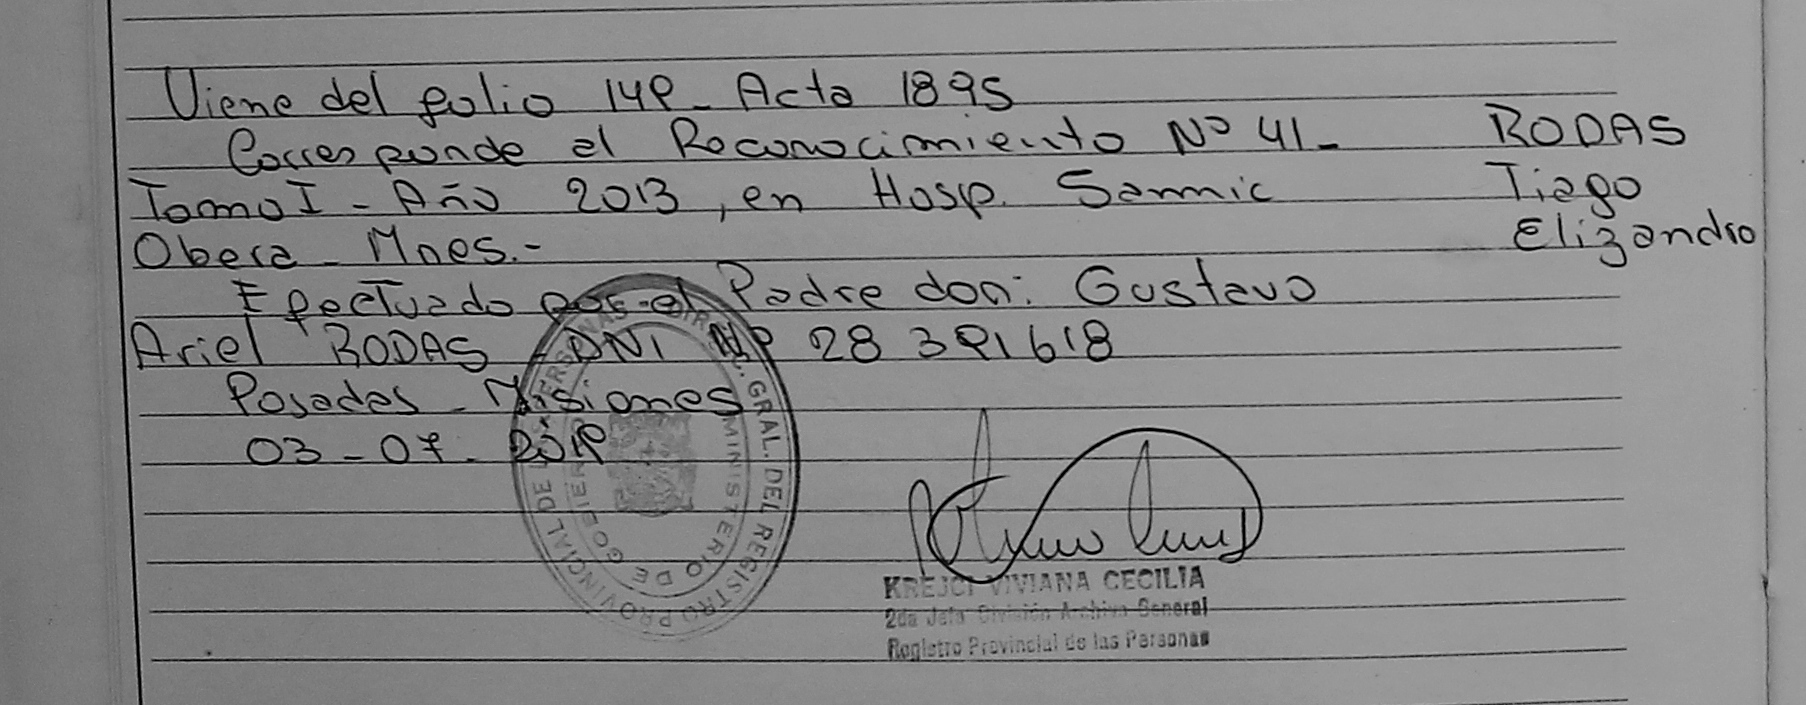 Viene del folio 149 - Acta 1895
Corresponde al Reconocimiento Nº 41 -
Tomo I - Año 2013, en Hosp. Sammic
Obera - Mnes. -
Efectuado por el Padre don: Gustavo
Ariel RODAS - DNI Nº 28 391618
Posadas - Misiones
03 - 07 -
RODAS
Tiago
Elizandro
DIREC. GRAL. DEL REGISTRO PROVINCIAL DE LAS PERSONAS
MINISTERIO DE GOBIERNO
KREJCI VIVIANA CECILIA
2da Jefa División Archivo General
Registro Provincial de las Personas